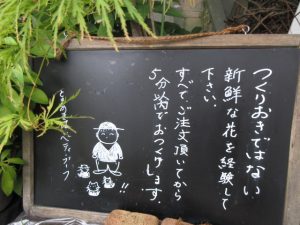 つくりおきではない
新鮮な花を経験して
下さい。
すべてご注文頂いてから
5分以内でおつくりします。
!!